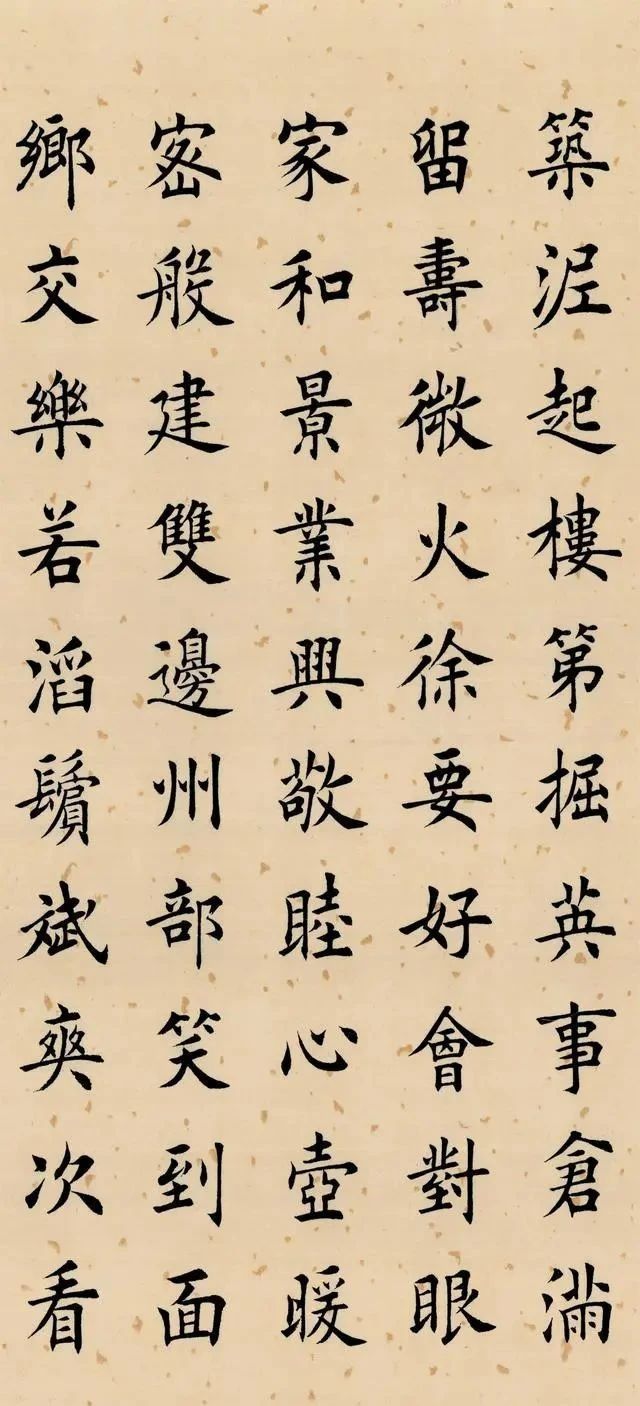 築泥起樓第掘英事倉滿
留壽微火徐要好會對眼
家和景業興敬睦心壺暖
密般建雙邊州部笑到面
鄉交樂若滔鬢斌爽次看